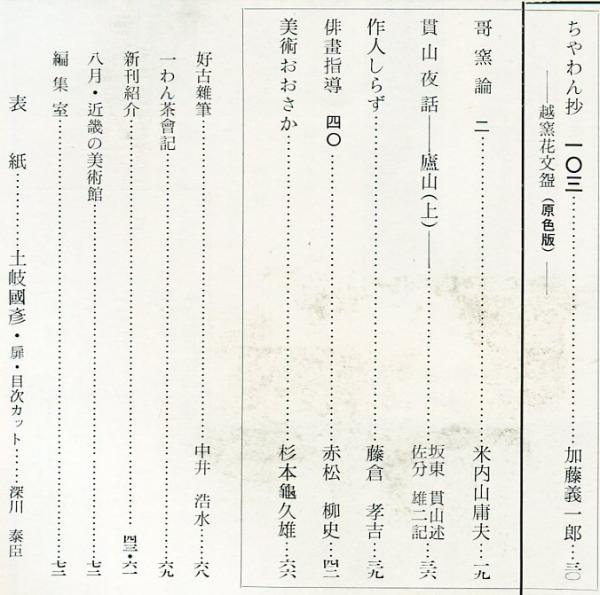 ちゃわん抄 一〇三……加藤義一郎…三〇
――越窯花文盌(原色版)――
哥窯論 二……米内山庸夫…一九
貫山夜話――廬山(上)――……坂東貫山述…三六
佐分雄二記
作人しらず……藤倉孝吉…三九
俳畫指導 四〇……赤松柳史…四二
美術おおさか……杉本龜久雄…六六
好古雜筆……中井浩水…六八
一わん茶會記……六九
新刊紹介……四三・六一
八月・近畿の美術館……七二
編集室……七二
表紙……土岐國彥・扉・目次カット……深川泰臣